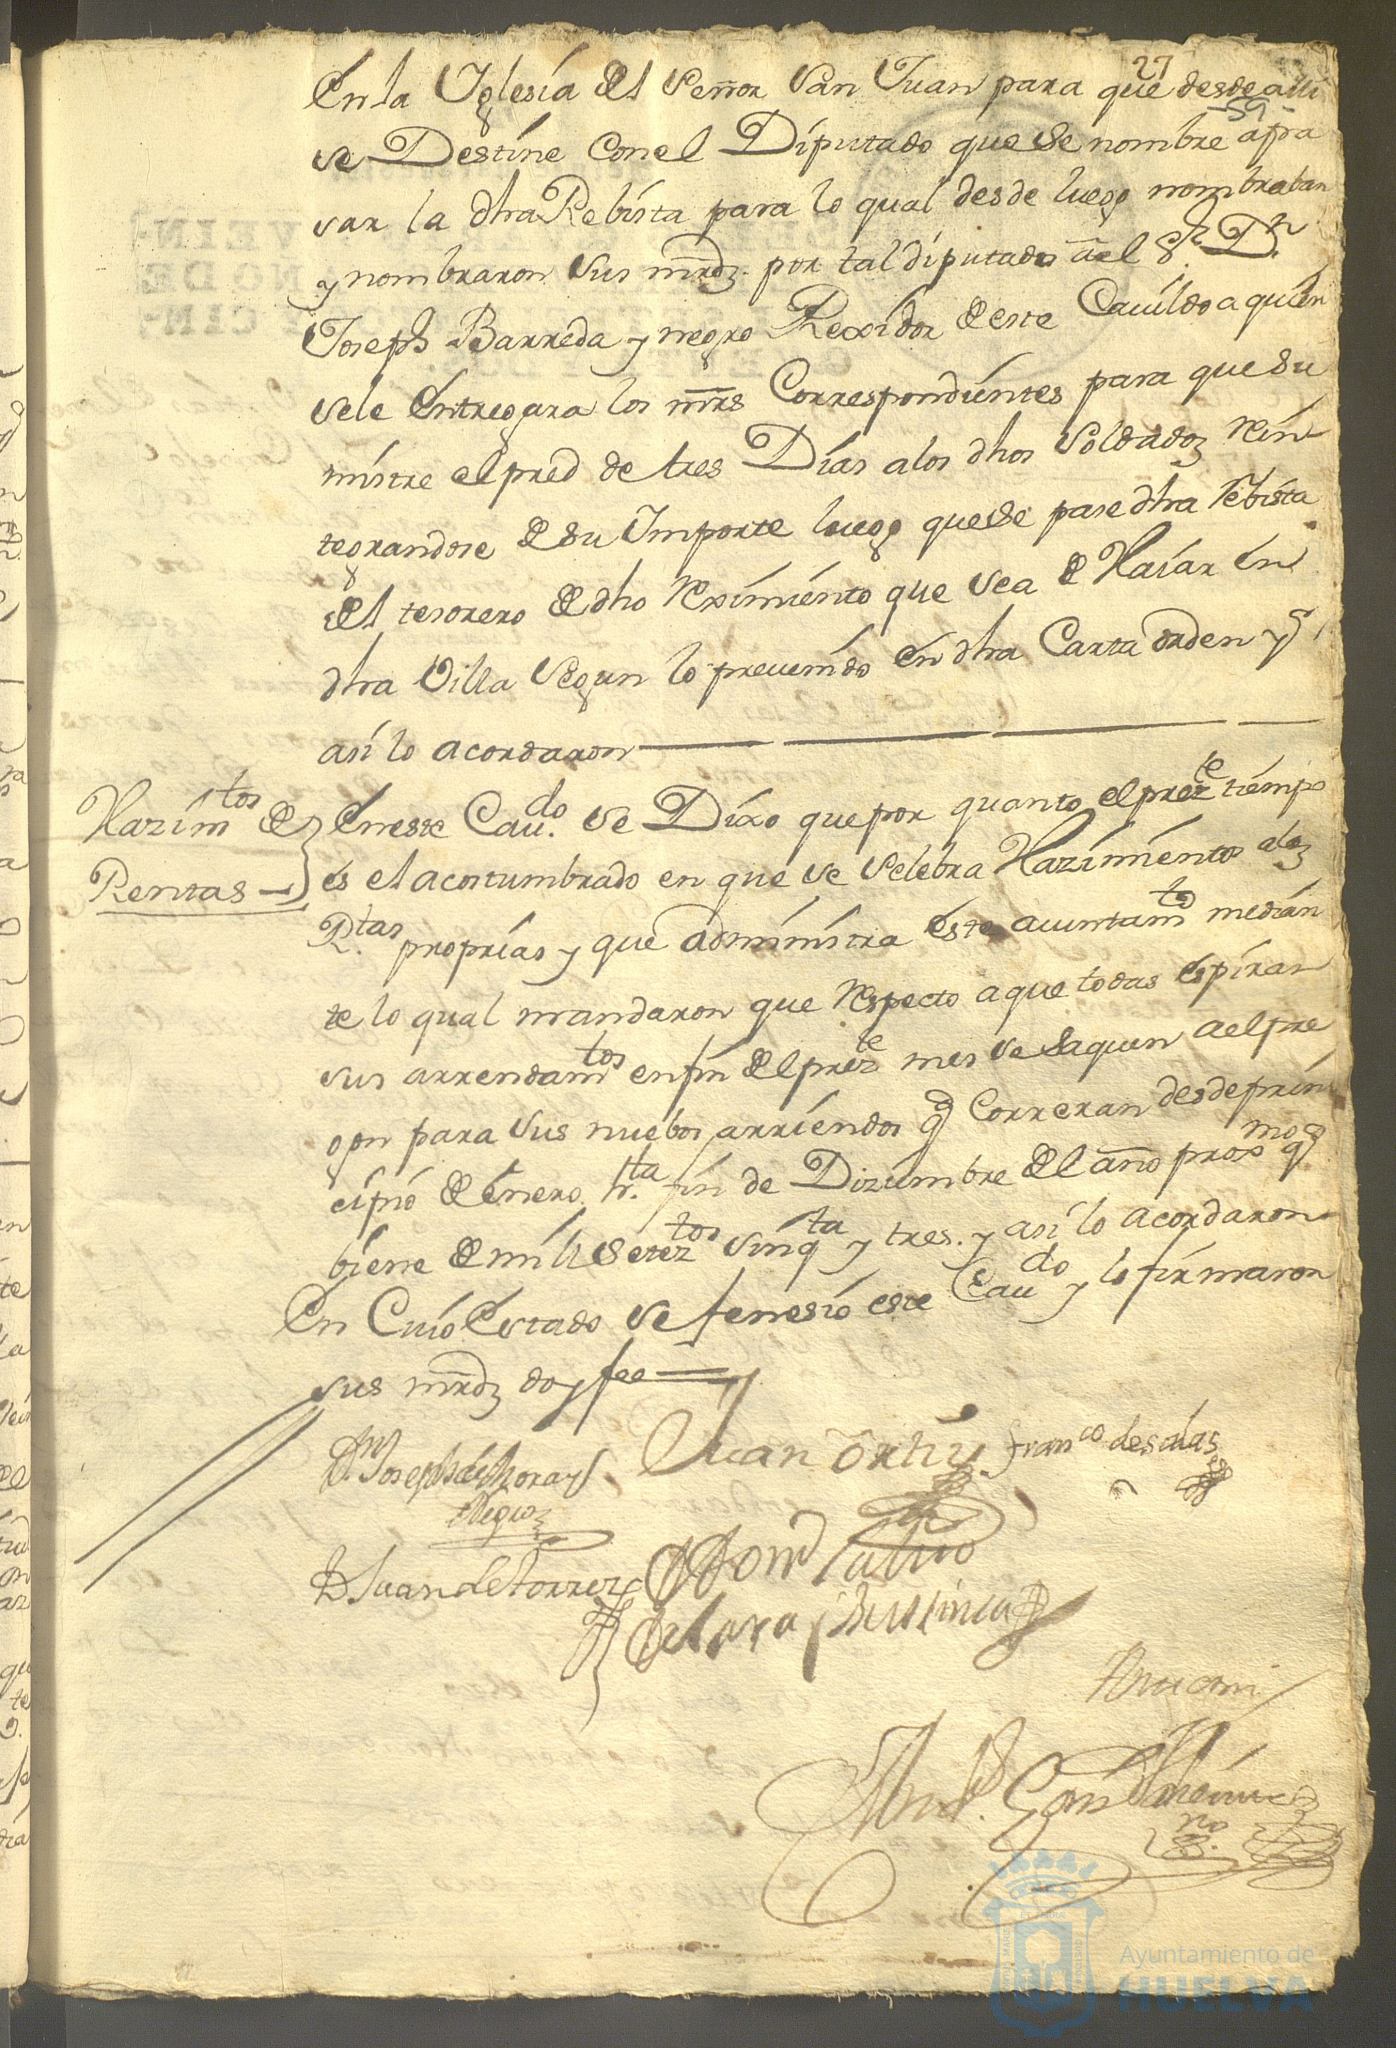 27
59
en la Yglesia del Señor San Juan para que desde alli
se Destine con el Diputado que se nombre a pa
sar la dha Rebista para lo qual desde luego nombraban
y nombraron sus mrds. por tal diputado a el Sr. Dn.
Joseph Barreda y negro Rexidor de este Cauildo a quien
se le entregara los mrs Correspondientes para que su
ministre el pred de tres Dias a los dhos Soldados Rein
tegrandose de su Importe luego que se pase dha rebista
del tesorero de dho reximiento que sea de Haiar en
dha Villa segun lo preuenido en dha Carta orden y
asi lo acordaron
Hazimtos de
Rentas
En este Caudo. se Dixo que por quanto el preste tiempo
es el acostumbrado en que se selebra Hazimiento a las
Rtas proprias y que administra este aiuntamto median
te lo qual mandaron que respecto a que todas espiran
sus arrendamtos en fin del preste mes se saquen a el pre
gon para sus nuebos arriendos q correran desde prin
cipio de enero hta fin de Diziembre del año proxmo q
biene de mil seteztos sinqta y tres. y asi lo acordaron
En Cuio estado se fenesio este Caudo y lo firmaron
sus mrds doy fee
Dn Joseph de Mora y
Negro
Juan Ortiz
Franco de salas
D Juan de torres
de Lara y Bustinca
Ante mi
Ayuntamiento de
HUELVA